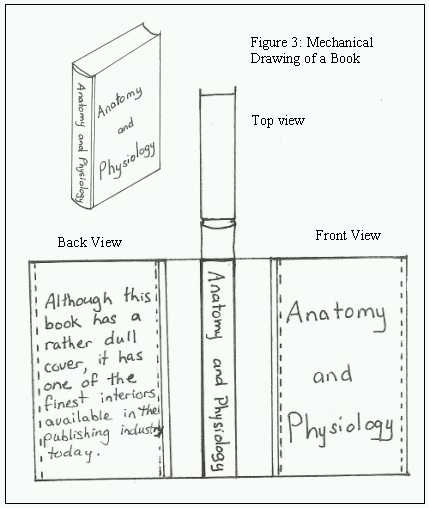 Figure 3: Mechanical
Drawing of a Book
Anatomy and Physiology
Anatomy
and
Physiology
Top view
Back View
Front View
Although this
book has a
rather dull
cover, it has
one of the
finest interiors
available in the
publishing industry
today.
Anatomy and Physiology
Anatomy
and
Physiology